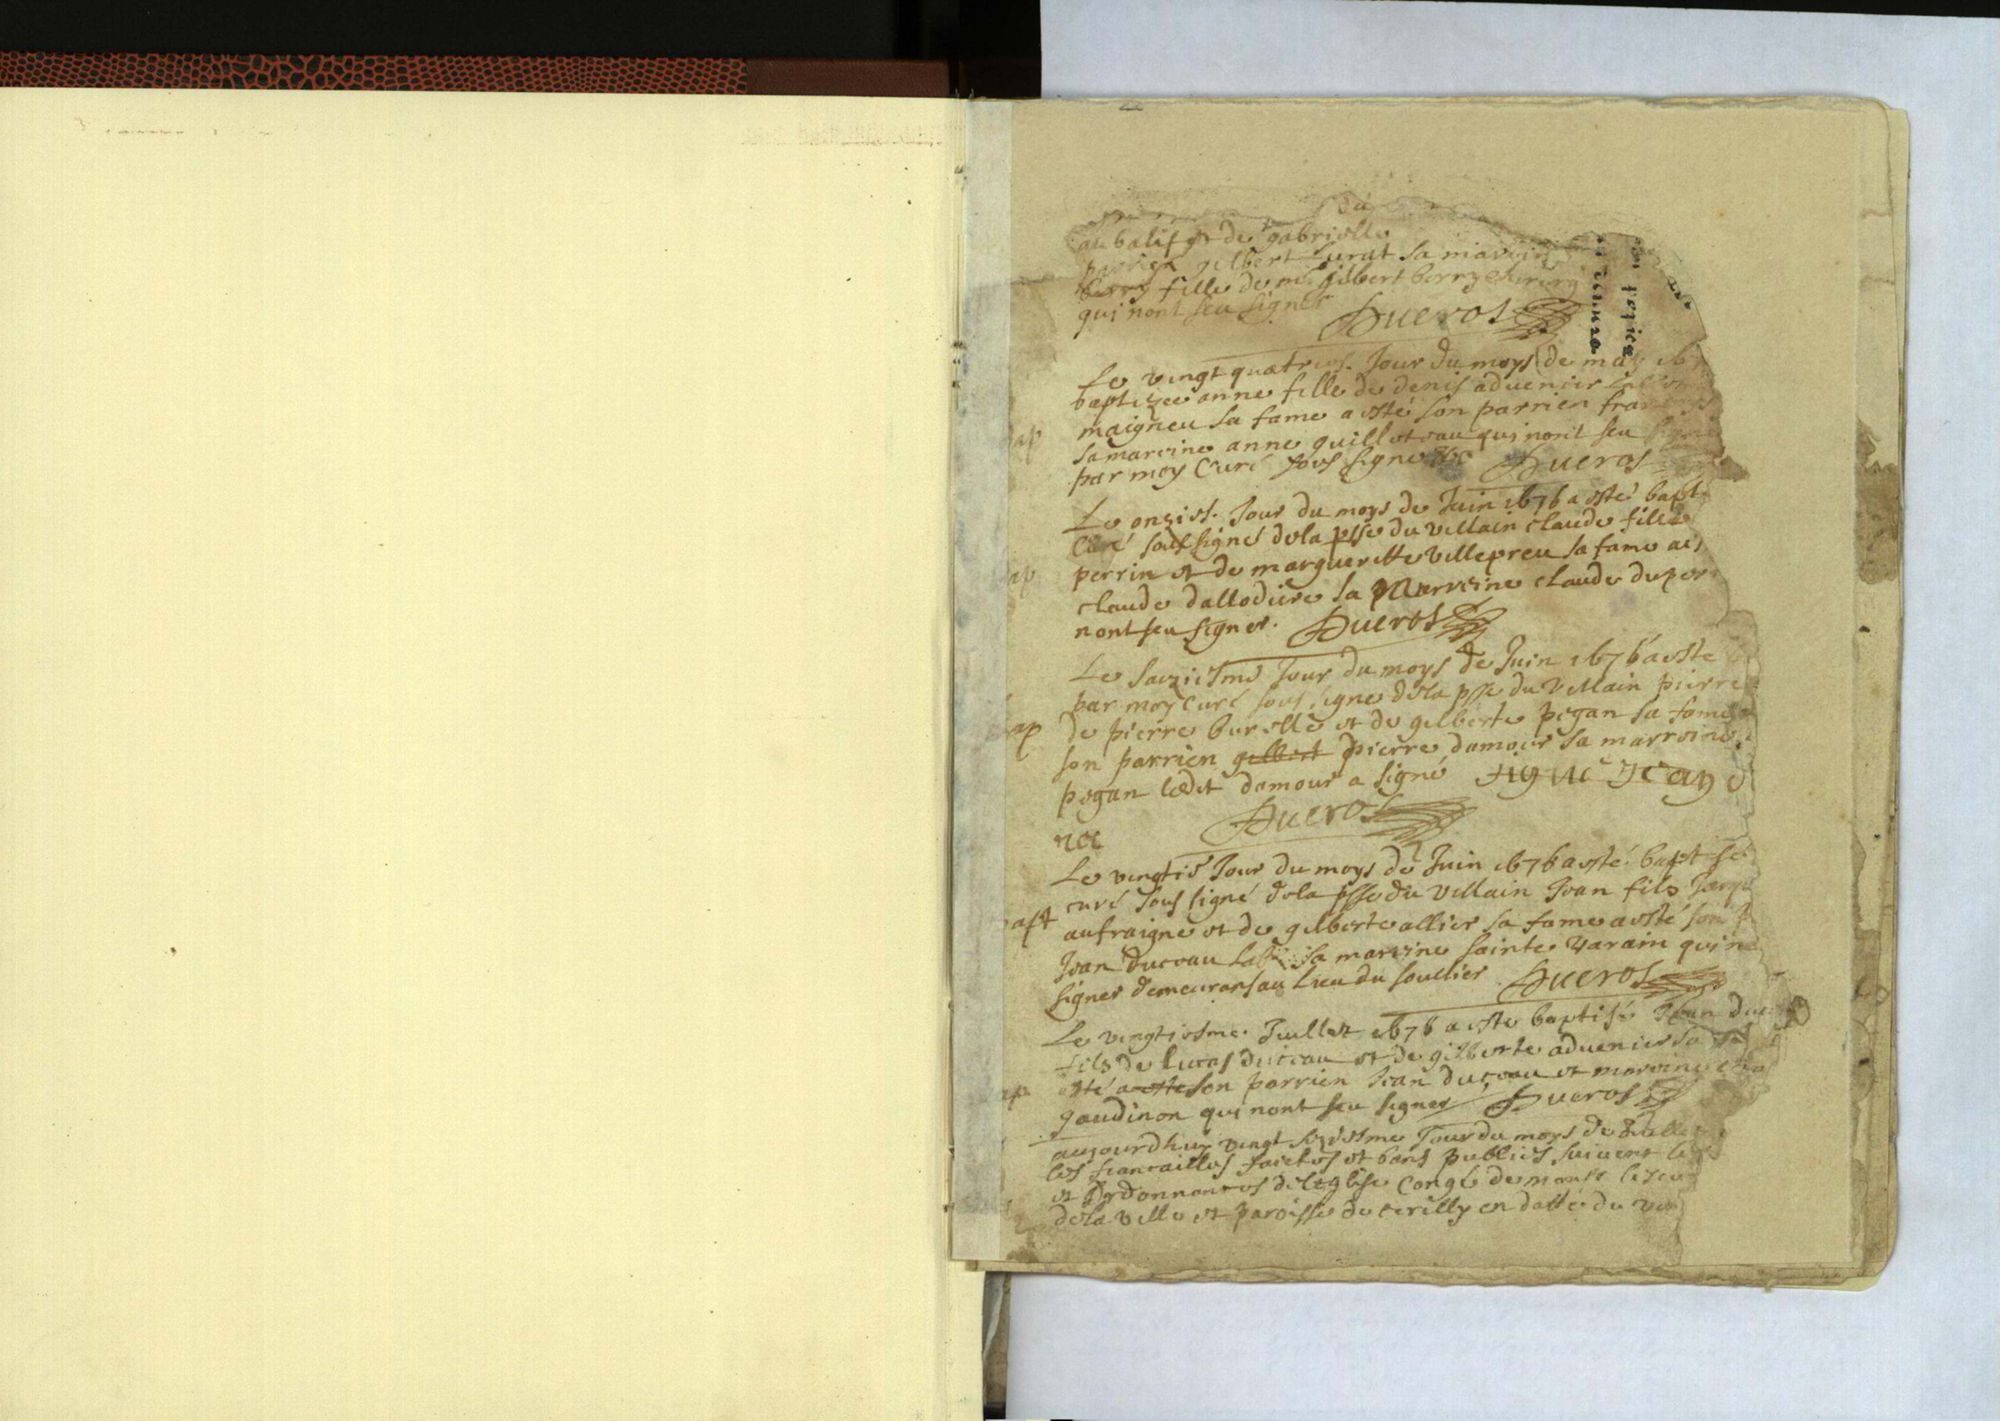 du
aubalif et de gabrielle
parrien gilbert Lurat sa marrine
fille de me gilbert berry chirurg
qui nont seu signer Dueros
Le vingt quatries. Jour du moys de may 167
baptizee anne fille de denis aduenier
maigneu sa fame a esté son parrien françoys
sa mareine anne guilleteau qui nont seu signe
par moy Curé sous signe Dueros
bap
Le onzies. Jour du moys de Juin 1676 a esté bapt
Curé soussigné dela psse du vellain claude fille
perrin et de marguerette villepreu sa fame a es
claude dallodiere sa Marreine claude duper
nont seu signer. Dueros
bap
Le saeziesme Jour du moys de Juin 1676 a este
par moy Curé sous signe dela psse du vellain pierre
de pierre burelle et de gilberte pegan sa fame
son parrien gilbert pierre damour sa marreine
pegan ledit damour a signé signé Jean d
na
Dueros
bap
Le vingtie Jour du moys de Juin 1676 a esté bapt
curé sous signé dela psse du vellain Jean fils Jacque
aufraigne et de gilberte allier sa fame a esté son p
Jean duceau sa mareine sainte varain qui n
signer demeurans au Lieu du soullier Dueros
bapt
Le vingtiesme. Juillet 1676 a este baptisé Jean duc
fils de lucas duceau et de gilberte aduenier sa
esté a este son parrien Jean duceau et mareine
gaudinon qui nont seu signer Dueros
bap
aujourdhuy vingt sixiesme Jour du moys de Juillet
les fiancailles faictes et bans publies suivent les
et Ordonnances de leglise Congé de monsr le Cur
dela ville et paroisse de cerilly en datte du vin